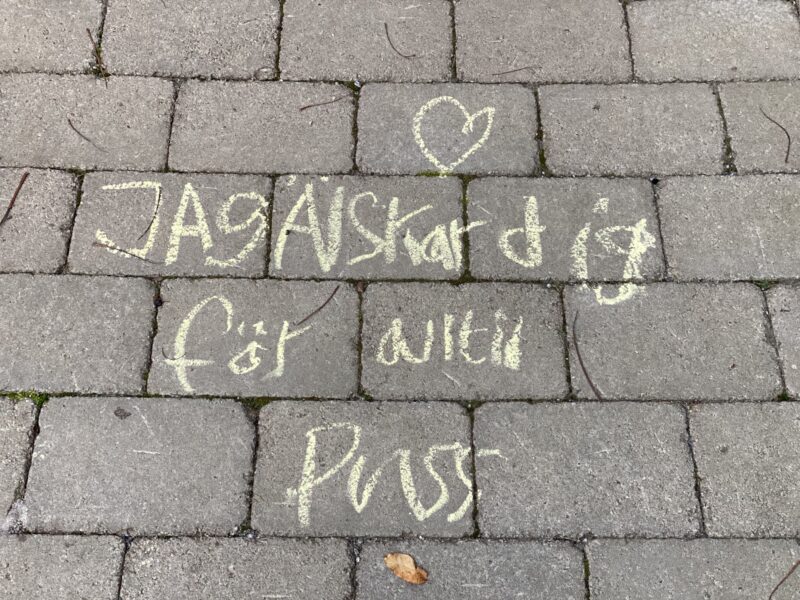 JAg Älskar dig
för alltid
Puss